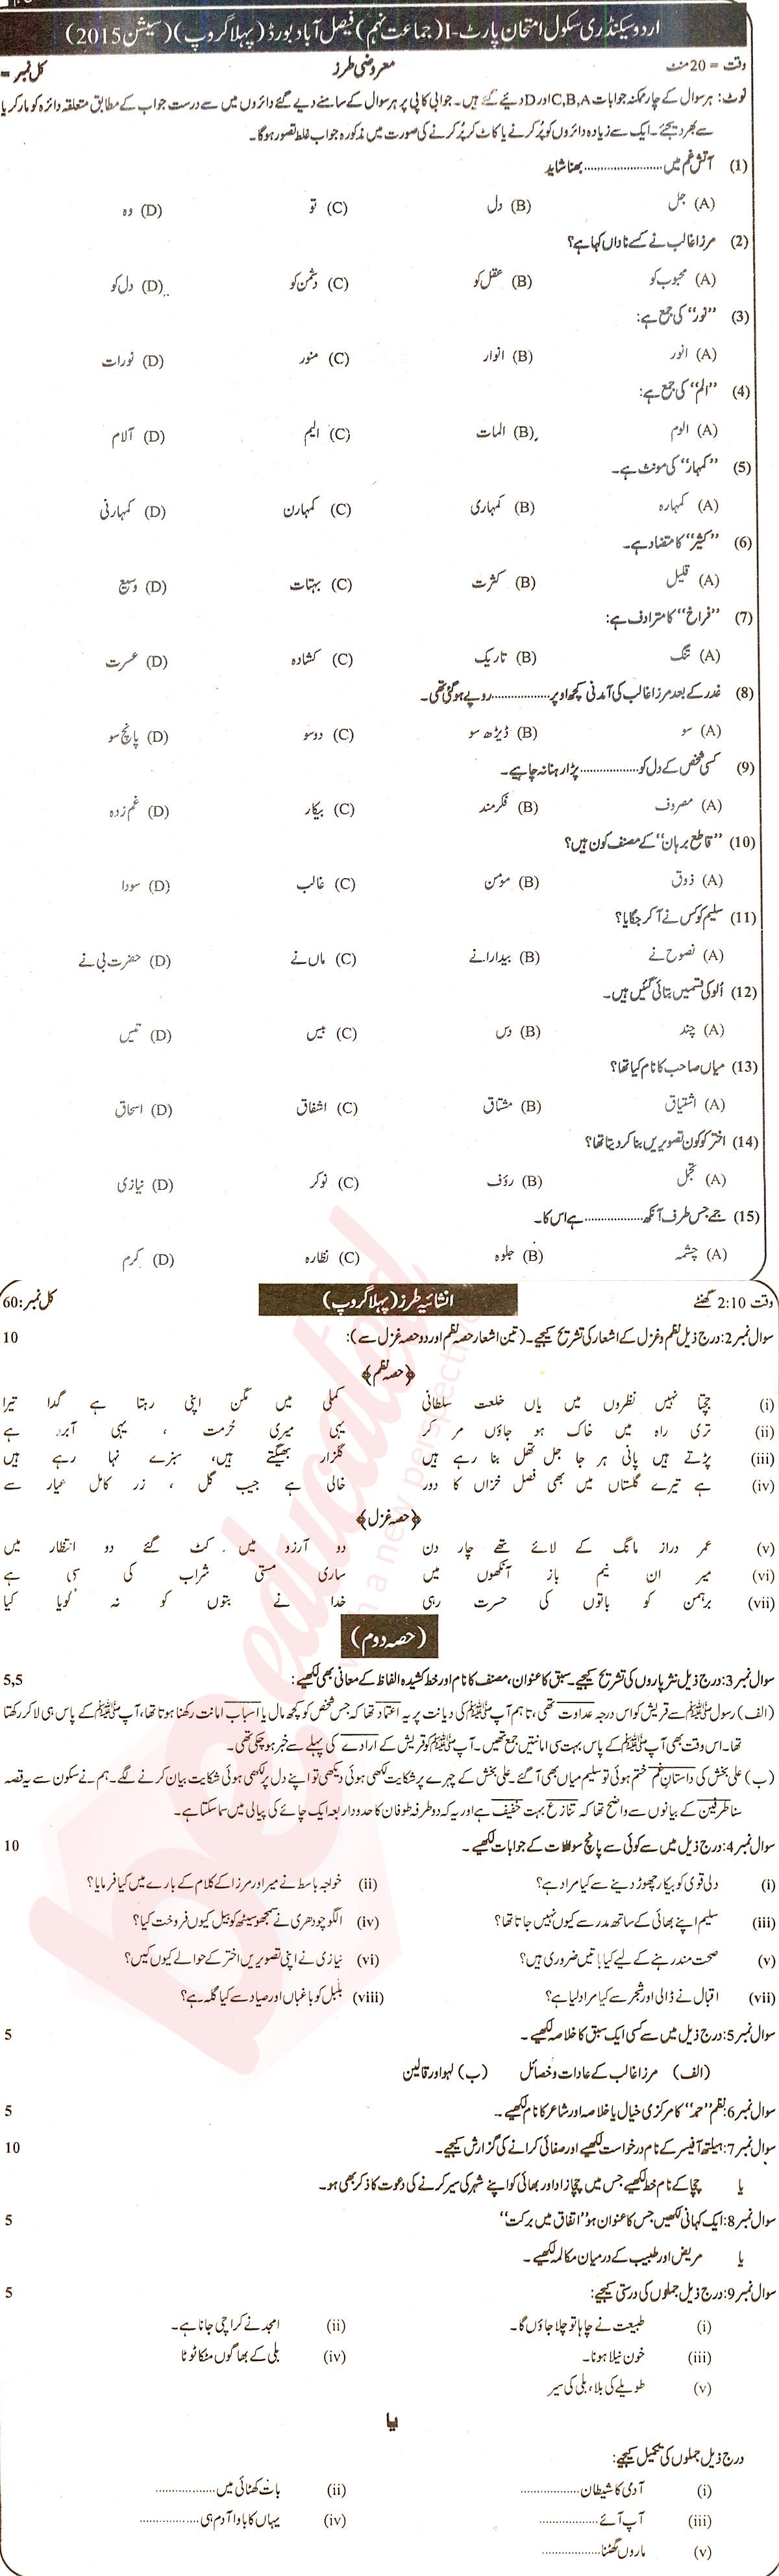 اردو سیکنڈری سکول امتحان پارٹ-I (جماعت نہم) فیصل آباد بورڈ (پہلا گروپ) (سیشن 2015)
وقت = 20 منٹ معروضی طرز کل نمبر =
نوٹ: ہر سوال کے چار ممکنہ جوابات C,B,A اور D دیئے گئے ہیں۔ جوابی کاپی پر ہر سوال کے سامنے دیے گئے دائروں میں سے درست جواب کے مطابق متعلقہ دائرہ کو مار کر یا
سے بھر دیجئے۔ ایک سے زیادہ دائروں کو پُر کرنے یا کاٹ کر پُر کرنے کی صورت میں مذکورہ جواب غلط تصور ہوگا۔
(1) آتش غم میں .................... بھنا شاید
(A) جل (B) دل (C) تو (D) وہ
(2) مرزا غالب نے کسے ناداں کہا ہے؟
(A) محبوب کو (B) عقل کو (C) دشمن کو (D) دل کو
(3) ”نور“ کی جمع ہے:
(A) انور (B) انوار (C) منور (D) نورات
(4) ”الم“ کی جمع ہے:
(A) الوم (B) المات (C) الیم (D) آلام
(5) ”کمہار“ کی مونث ہے۔
(A) کمہارہ (B) کمہاری (C) کمہارن (D) کمہارنی
(6) ”کثیر“ کا متضاد ہے۔
(A) قلیل (B) کثرت (C) بہتات (D) وسیع
(7) ”فراخ“ کا مترادف ہے:
(A) تنگ (B) تاریک (C) کشادہ (D) عسرت
(8) غدر کے بعد مرزا غالب کی آمدنی کچھ اوپر ................ روپے ہو گئی تھی۔
(A) سو (B) ڈیڑھ سو (C) دو سو (D) پانچ سو
(9) کسی شخص کے دل کو ................ پڑا رہنا نہ چاہیے۔
(A) مصروف (B) فکر مند (C) بیکار (D) غم زدہ
(10) ”قاطع برہان“ کے مصنف کون ہیں؟
(A) ذوق (B) مومن (C) غالب (D) سودا
(11) سلیم کو کس نے آ کر جگایا؟
(A) نصوح نے (B) بیدارا نے (C) ماں نے (D) حضرت بی نے
(12) اُلو کی قسمیں بتائی گئیں ہیں۔
(A) چند (B) دس (C) بیس (D) تیس
(13) میاں صاحب کا نام کیا تھا؟
(A) اشتیاق (B) مشتاق (C) اشفاق (D) اسحاق
(14) اختر کو کون تصویریں بنا کر دیتا تھا؟
(A) تجمل (B) رؤف (C) نوکر (D) نیازی
(15) جمے جس طرف آنکھ ................ ہے اس کا۔
(A) چشمہ (B) جلوہ (C) نظارہ (D) کرم
وقت 2:10 گھنٹے انشائیہ طرز (پہلا گروپ) کل نمبر: 60
سوال نمبر 2: درج ذیل نظم و غزل کے اشعار کی تشریح کیجیے۔ (تین اشعار حصہ نظم اور دو حصہ غزل سے): 10
﴿حصہ نظم﴾
(i) جچتا نہیں نظروں میں یاں خلعت سلطانی کملی میں مگن اپنی رہتا ہے گدا تیرا
(ii) تری راہ میں خاک ہو جاؤں مر کر یہی میری حُرمت ، یہی آبرو ہے
(iii) پڑتے ہیں پانی ہر جا جل تھل بنا رہے ہیں گلزار بھیگتے ہیں، سبزے نہا رہے ہیں
(iv) ہے تیرے گلستاں میں بھی فصل خزاں کا دور خالی ہے جیب گل ، زر کامل عیار سے
﴿حصہ غزل﴾
(v) عمر دراز مانگ کے لائے تھے چار دن دو آرزو میں کٹ گئے دو انتظار میں
(vi) میر ان نیم باز آنکھوں میں ساری مستی شراب کی سی ہے
(vii) برہمن کو باتوں کی حسرت رہی خدا نے بتوں کو نہ گویا کیا
(حصہ دوم)
سوال نمبر 3: درج ذیل نثر پاروں کی تشریح کیجیے۔ سبق کا عنوان، مصنف کا نام اور خط کشیدہ الفاظ کے معانی بھی لکھیے: 5,5
(الف) رسول ﷺ سے قریش کو اس درجہ عداوت تھی، تاہم آپ ﷺ کی دیانت پر یہ اعتماد تھا کہ جس شخص کو کچھ مال یا اسباب امانت رکھنا ہوتا تھا، آپ ﷺ کے پاس ہی لا کر رکھتا
تھا۔ اس وقت بھی آپ ﷺ کے پاس بہت سی امانتیں جمع تھیں۔ آپ ﷺ کو قریش کے ارادے کی پہلے سے خبر ہو چکی تھی۔
(ب) علی بخش کی داستانِ غم ختم ہوئی تو سلیم میاں بھی آ گئے۔ علی بخش کے چہرے پر شکایت لکھی ہوئی دیکھی تو اپنے دل پر لکھی ہوئی شکایت بیان کرنے لگے۔ ہم نے سکون سے یہ قصہ
سنا طرفین کے بیانوں سے واضح تھا کہ تنازع بہت خفیف ہے اور یہ کہ دو طرفہ طوفان کا حدود اربعہ ایک چائے کی پیالی میں سما سکتا ہے۔
سوال نمبر 4: درج ذیل میں سے کوئی سے پانچ سوالات کے جوابات لکھیے۔ 10
(i) دلی قویٰ کو بیکار چھوڑ دینے سے کیا مراد ہے؟ (ii) خواجہ باسط نے میر اور مرزا کے کلام کے بارے میں کیا فرمایا؟
(iii) سلیم اپنے بھائی کے ساتھ مدرسے کیوں نہیں جاتا تھا؟ (iv) الگو چودھری نے سمجھو سیٹھ کو بیل کیوں فروخت کیا؟
(v) صحت مند رہنے کے لیے کیا باتیں ضروری ہیں؟ (vi) نیازی نے اپنی تصویریں اختر کے حوالے کیوں کیں؟
(vii) اقبال نے ڈالی اور شجر سے کیا مراد لیا ہے؟ (viii) بلبل کو باغباں اور صیاد سے کیا گلہ ہے؟
سوال نمبر 5: درج ذیل میں سے کسی ایک سبق کا خلاصہ لکھیے۔ 5
(الف) مرزا غالب کے عادات و خصائل (ب) لہو اور قالین
سوال نمبر 6: نظم ”حمد“ کا مرکزی خیال یا خلاصہ اور شاعر کا نام لکھیے۔ 5
سوال نمبر 7: ہیلتھ آفیسر کے نام درخواست لکھیے اور صفائی کرانے کی گزارش کیجیے۔ 10
یا چچا کے نام خط لکھیے جس میں چچا زاد اور بھائی کو اپنے شہر کی سیر کرنے کی دعوت کا ذکر بھی ہو۔
سوال نمبر 8: ایک کہانی لکھیں جس کا عنوان ہو ”اتفاق میں برکت“ 5
یا مریض اور طبیب کے درمیان مکالمہ لکھیے۔
سوال نمبر 9: درج ذیل جملوں کی درستی کیجیے: 5
(i) طبیعت نے چاہا تو چلا جاؤں گا۔ (ii) امجد نے کراچی جانا ہے۔
(iii) خون نیلا ہونا۔ (iv) بلی کے بھاگوں مٹکا ٹوٹا
(v) طویلے کی بلا، بلی کی سیر
یا
درج ذیل جملوں کی تکمیل کیجیے:
(i) آدمی کا شیطان ................ (ii) بات کھٹائی میں ................
(iii) آپ آئے ................ (iv) یہاں کا باوا آدم ہی ................
(v) ماروں گھٹنا ................
beeducated